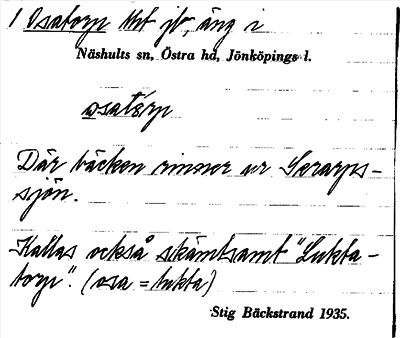 1 Osatorp Htr jb, äng i
Näshults sn, Östra hd, Jönköpings l.
osatórp
Där bäcken rinner ur Serarps-
sjön.
Kallas också skämtsamt "Lukta-
torp". (osa = lukta)
Stig Bäckstrand 1935.